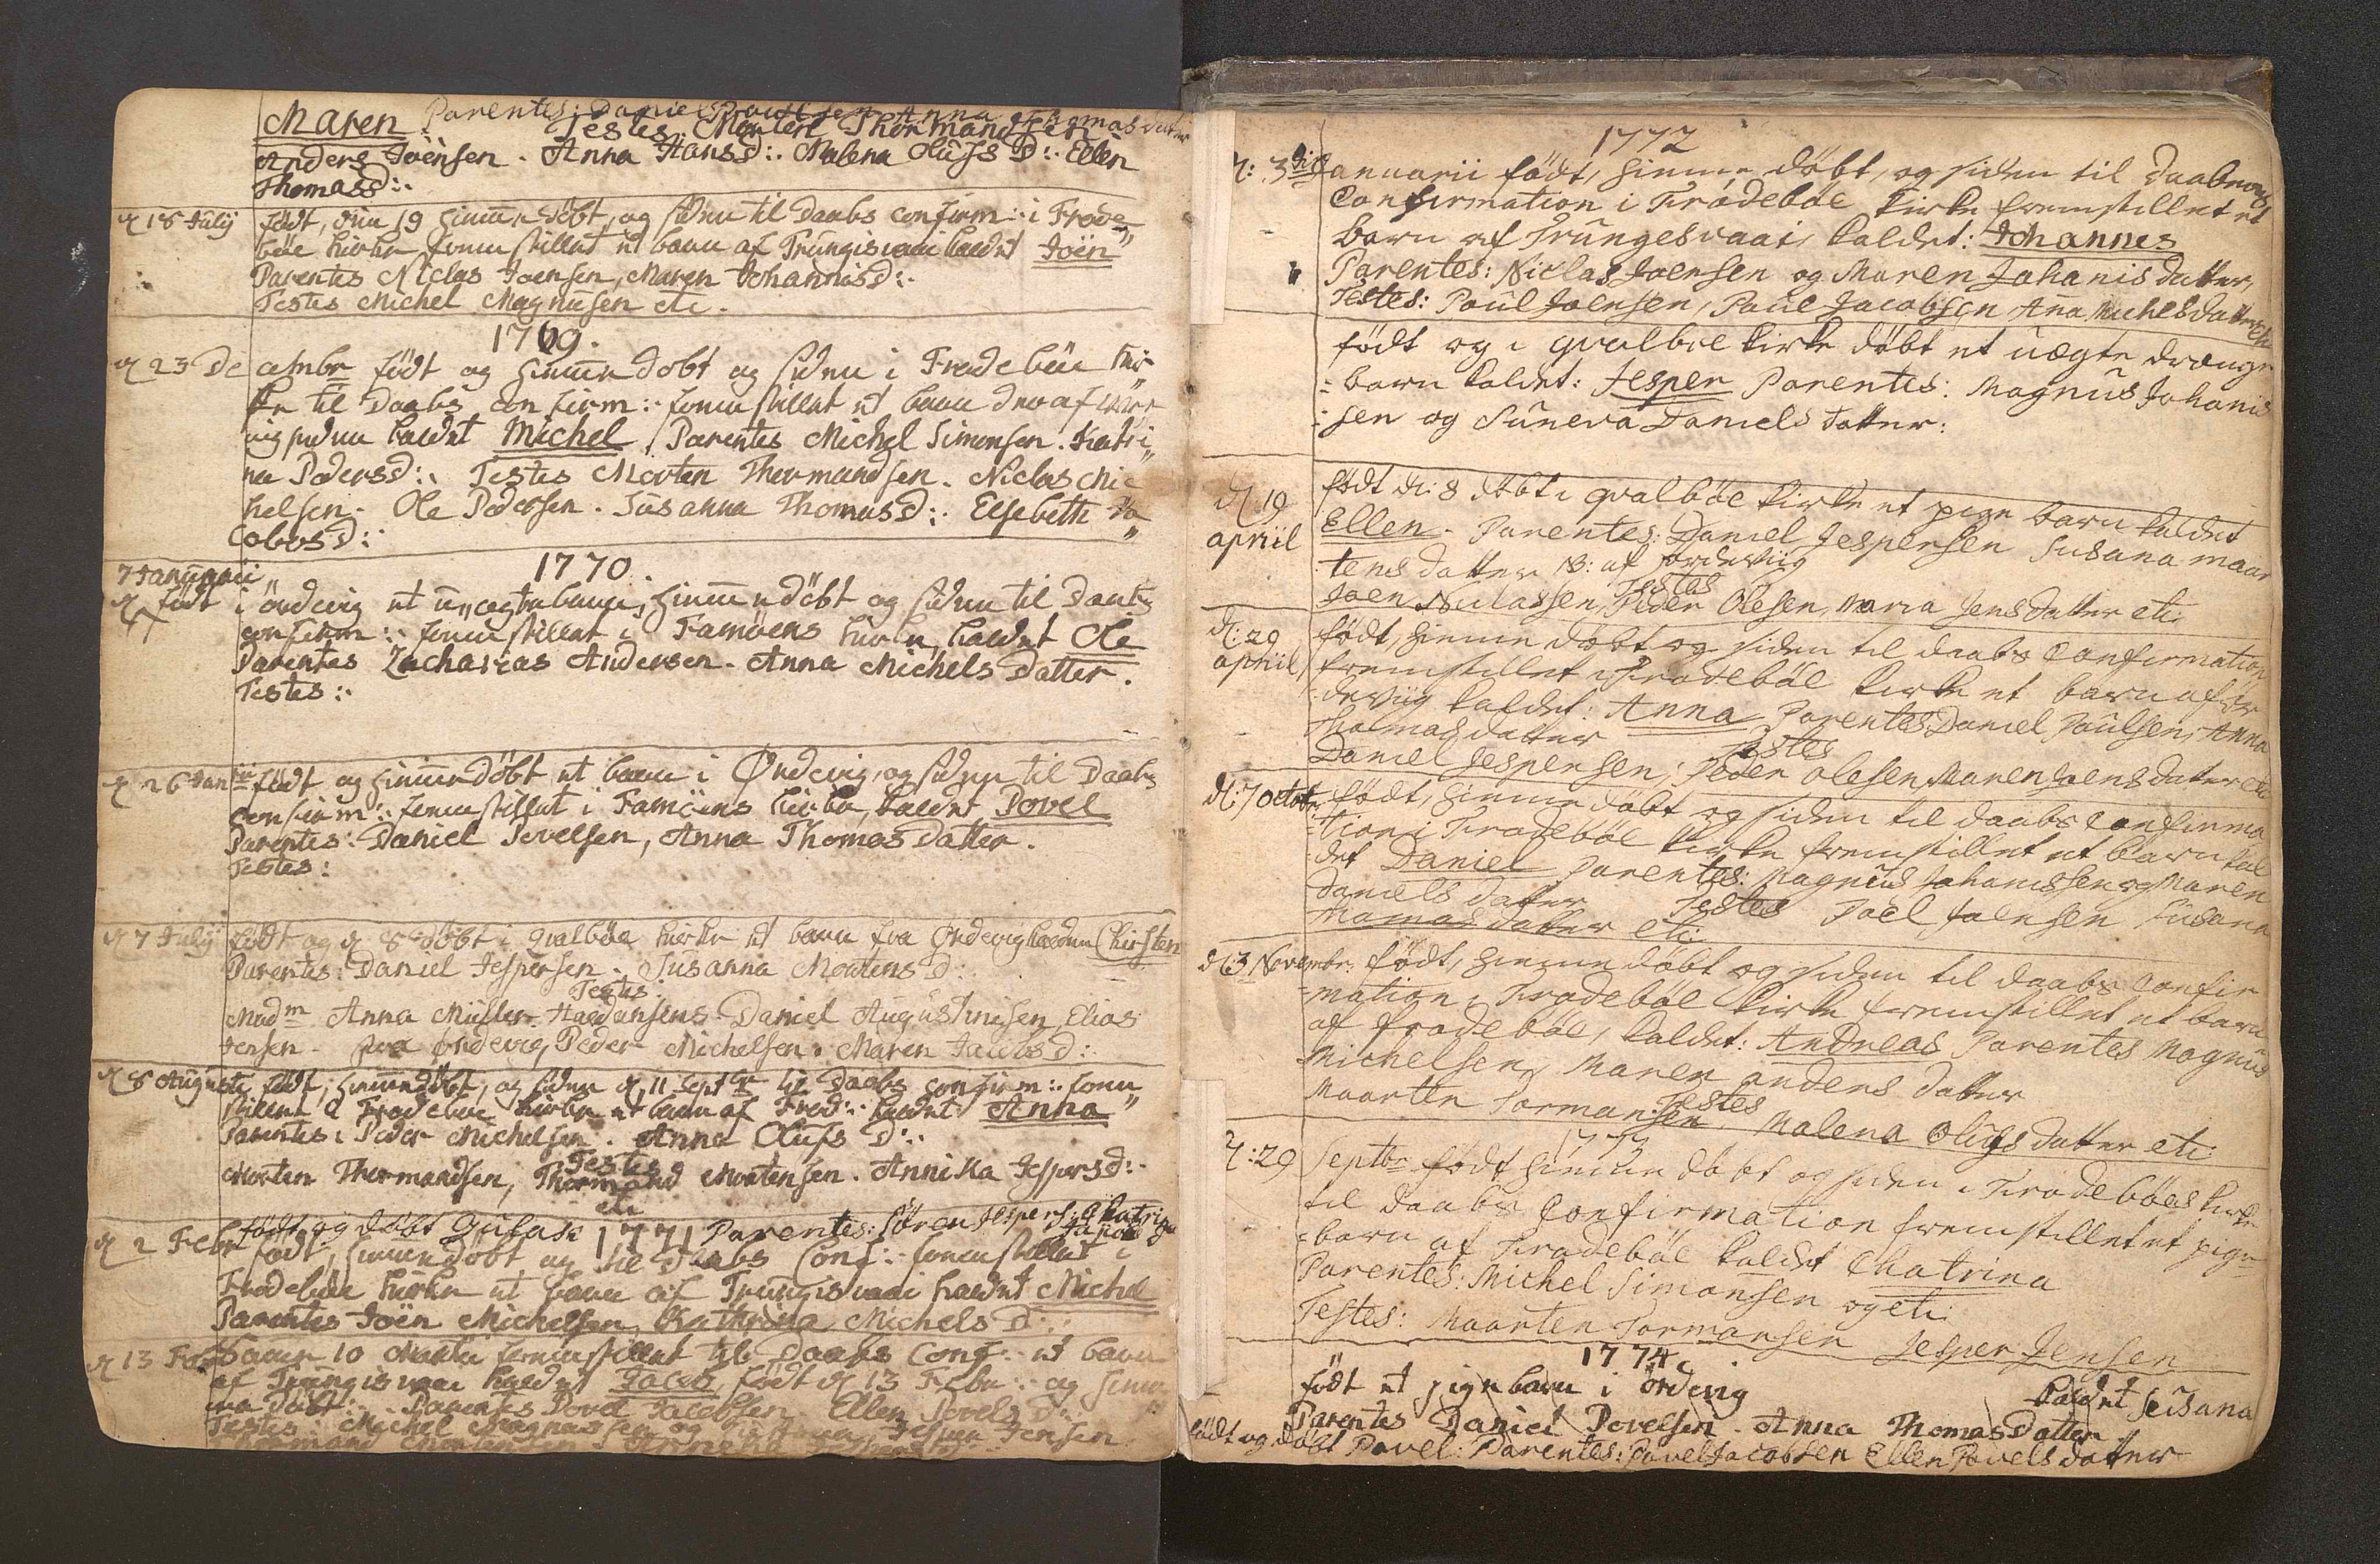 Maren Parentes: Daniel Poulsen Anna Thomasdatter
Testes: Morten Thormandsen
Anders Joensen. Anna Hansd:. Malena Olufs D:. Ellen
Thomasd:.
d 18 July født, den 19 hiemme døbt, og siden til Daabs confirm:. i Frode„
bøe kirke fremstillet et barn af Trungisvaai kaldet Joen
Parentes Niclas Joensen, Maren Johannisd:.
Testes Michel Magnusen etc.
1769.
d 23 De cembr født og hiemme døbt og siden i Frodebøe kir„
ke til Daabs confirm:. fremstillet et barn
vig kaldet Michel. Parentes Michel Simonsen. Katri„
na Pedersd:. Testes Morten Thormandsen. Niclas Mic
helsen. Ole Pedersen. Susanna Thomasd:. Elsebeth Ja„
cobosd:.
1770.
7 Januarii
d født i ördevig et u„ægte barn, hiemme døbt og siden til Daabs
confirm:. fremstillet i Famöens kirke, kaldet Ole
Parentes Zacharias Andersen. Anna Michels Datter.
Testes:.
d 26 Janrii født og hiemme døbt et barn i Ördevig, og siden til Daabs
confirm:. fremstillet i Famöens kirke, kaldet Povel
Parentes: Daniel Povelsen, Anna Thomas datter.
Testes:
d 7 July født og d 8de døbt i qvalbøe kirke et barn fra Ördevig kaldet Chirsten
Parentes: Daniel Jespersen. Susanna Mortens D:
Testes:
Madm Anna Müller. Daniel Augustinusen, Elias
Jensen. Ördevig, Peder Michelsen. Maren Jacobs D:
d 8 Augusti født, hiemme døbt, og siden d 11 Septbr til Daabs confirm:. frem„
stillet i Frodebøe kirke et barn af Frod:. kaldet Anna
Parentes: Peder Michelsen. Anna Olufs D:.
Testes
Morten Thormandsen, Thormand Mortensen. Annika Jespersd:.
etc
født og døbt 1771 Parentes: Søren Jespers: Chatrina
d 2 Febr født, hiemme døbt og til Daabs Conf:. fremstillet i
Frodebøe kirke et barn af Trungisvaai kaldet Michel
Parentes Joen Michelsen, Kathrina Michels D:.
d 13 Febr 10 Martii fremstillet til Daabs Conf:. et barn
af Trungisvaai kaldet Jacob, født d 13 Febr:. og hiem„
me døbt:. Parentes Povel Jacobsen. Ellen Povels D:
Testes. Michel Magnussen og Jensen
1772
d: 3die Januarii født, hiemme døbt, og siden til Daabens
Confirmation i Frodebøe kirke fremstillet et
barn af Trungesvaai, kaldet: Johannes
Parentes: Niclas Joensen og Maren Johanis datter,
Testes: Poul Joensen, Poul Jacobsen Ana Michelsdatter etc
født og i qvalbøe kirke døbt et uægte drenge
barn kaldet: Jesper Parentes: Magnus Johanis
sen og Suneva Daniels datter:
d 19 apriil født d: 8 døbt i qvalbøe kirke et pige barn kaldet
Ellen. Parentes: Daniel Jespersen Susana maar
tens datter B: af fordevig
Testes
Joen Niclassen, Peder Olesen, Maria Jens datter etc
d: 29 apriil født, hiemme døbt og siden til daabs Confirmation
fremstillet i Frodebøe kirke et barn af ör
devig kaldet: Anna Parentes Daniel Poulsen, Anna
Thomas datter Testes
Daniel Jespersen, Peder Olesen Maren Joens datter etc
d: 7 October født, hiemme døbt og siden til daabs Confirma
tion i Frodebøe kirke fremstillet et barn kal
det Daniel Parentes: Magnus Johanissen og Maren
Daniels datter Testes Poel Joensen Susana
Thomas datter etc
d: 3 Novembr: født, hiemme døbt og siden til daabs Confir
mation i Frodebøe kirke fremstillet et barn
af Frodebøe, kaldet: Andreas Parentes Magnus
Michelsen, Maren anders datter
Testes
Maarten Tormansen, Malena Olufs datter etc
1773
d: 29 Septbr født hiemme døbt og siden i Frodebøes kirke
til daabs Confirmation fremstillet et pige
barn af Frodebøe kaldet Chatrina
Parentes: Michel Simonsen og etc
Testes: Maarten Tormansen Jesper Jensen
1774
født et pigebarn i ördevig kaldet Susana
Parentes Daniel Povelsen. Anna Thomas Datter
født og døbt Povel: Parentes: Povel Jacobsen Ellen Povels datter